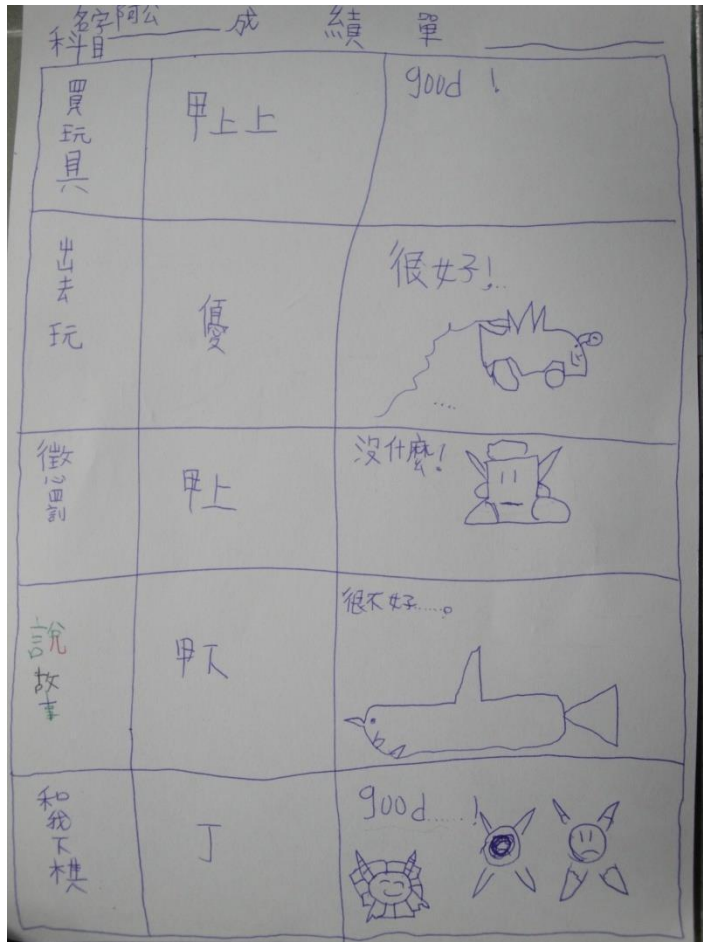 名字阿公 成績單
科目
買玩具 甲上上 good !
出去玩 優 很好!..
....
徵心罰 甲上 沒什麼!
說故事 甲下 很不好......。
和我下棋 丁 good......!